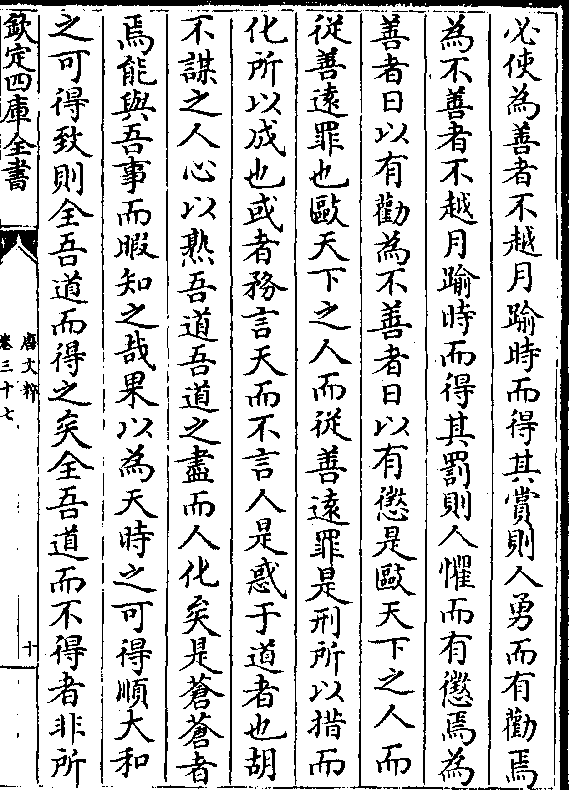 必使為善者不越月踰時而得其賞則人勇而有勸焉
為不善者不越月踰時而得其罰則人懼而有懲焉為
善者日以有勸為不善者日以有懲是歐天下之人而
從善遠罪也歐天下之人而從善遠罪是刑所以措而
化所以成也或者務言天而不言人是惑于道者也胡
不謀之人心以熟吾道吾道之盡而人化矣是蒼蒼者
焉能與吾事而暇知之哉果以為天時之可得順大和
之可得致則全吾道而得之矣全吾道而不得者非所
欽定四庫全書
唐文粹
卷三十七
十